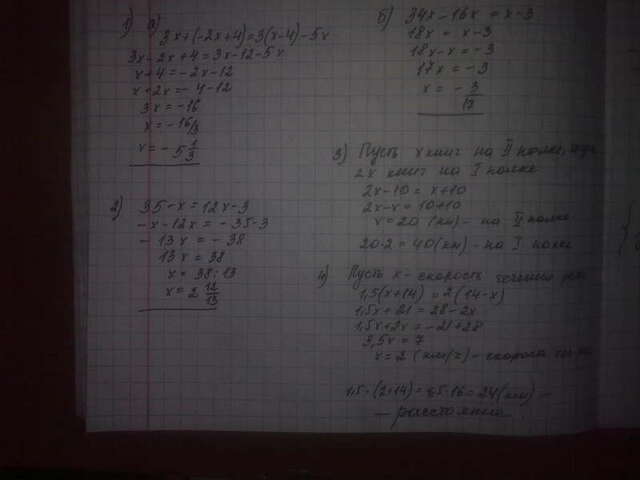 1) а)
3x+(-2x+4)=3(x-4)-5x
3x-2x+4=3x-12-5x
x+4=-2x-12
x+2x=-4-12
3x=-16
x=-16/3
x=-5 1/3
2) 35-x=12x-3
-x-12x=-35-3
-13x=-38
13x=38
x=38:13
x=2 12/13
б) 34x-16x=x-3
18x=x-3
18x-x=-3
17x=-3
x=-3/17
3) Пусть x книг на II полке,
2x книг на I полке
2x-10=x+10
2x-x=10+10
x=20 (кн) - на II полке
20·2=40(кн)-на I полке
4) Пусть x-скорость течения реки
1,5(x+14)=2(14-x)
1,5x+21=28-2x
1,5x+2x=-21+28
3,5x=7
x=2 (км/ч)-скорость
1,5·(2+14)=1,5·16=24(км)-
- расстояние